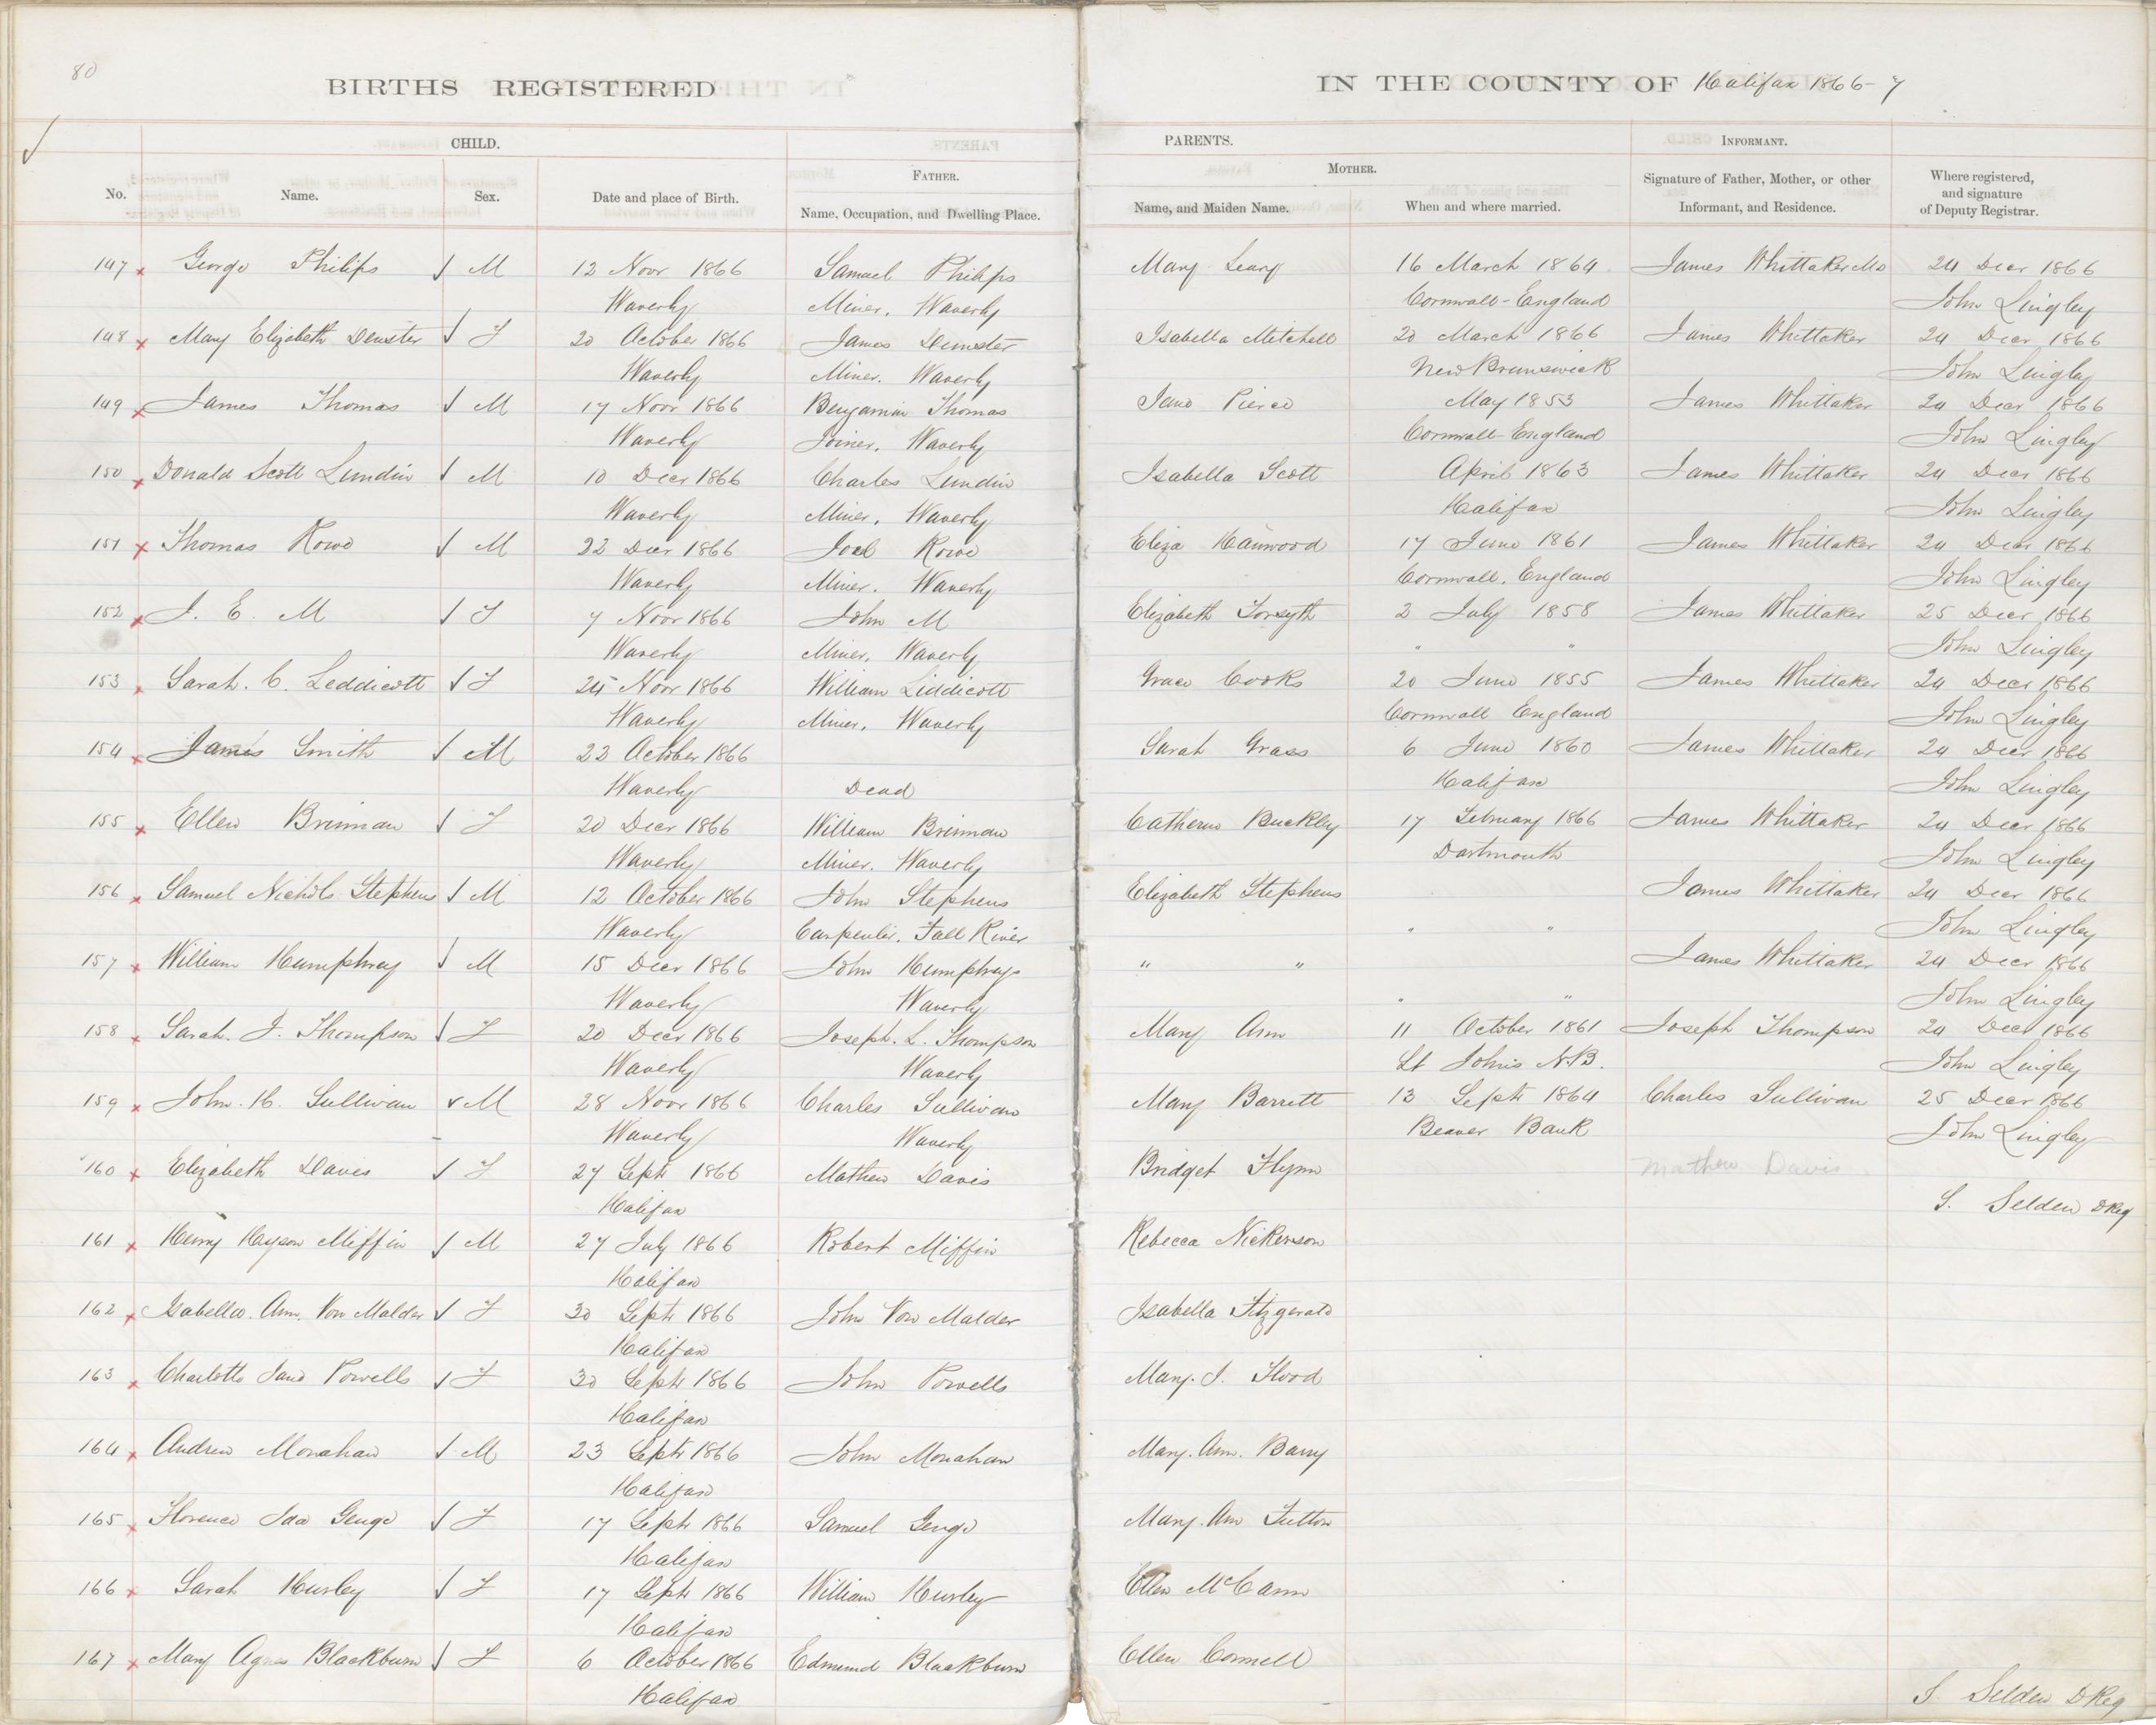 80
BIRTHS REGISTERED IN THE COUNTY OF Halifax 1866-7
CHILD. PARENTS. INFORMANT.
FATHER. MOTHER.
No. Name. Sex. Date and place of Birth. Name, Occupation, and Dwelling Place. Name, and Maiden Name. When and where married. Signature of Father, Mother, or other Informant, and Residence. Where registered, and signature of Deputy Registrar.
147 George Philips M 12 Novr 1866 Samuel Philips Mary Leary 16 March 1864 James Whittaker 24 Decr 1866
Waverly Miner, Waverly Cornwall-England John Lingley
148 Mary Elizabeth Demster F 20 October 1866 James Demster Isabella Mitchell 20 March 1866 James Whittaker 24 Decr 1866
Waverly Miner. Waverly New Brunswick John Lingley
149 James Thomas M 17 Novr 1866 Benjaman Thomas Jane Pierce May 1853 James Whittaker 24 Decr 1866
Waverly Joiner, Waverly Cornwall-England John Lingley
150 Donald Scott Lundin M 10 Decr 1866 Charles Lundin Isabella Scott April 1863 James Whittaker 24 Decr 1866
Waverly Miner, Waverly Halifax John Lingley
151 Thomas Rowe M 22 Decr 1866 Joel Rowe Eliza 17 June 1861 James Whittaker 24 Decr 1866
Waverly Miner. Waverly Cornwall, England John Lingley
152 J. E. M F 7 Novr 1866 John M Elizabeth Forsyth 2 July 1858 James Whittaker 25 Decr 1866
Waverly Miner, Waverly " " John Lingley
153 Sarah. C. Leddicott F 24 Novr 1866 William Liddicott Grace Cooks 20 June 1855 James Whittaker 24 Decr 1866
Waverly Miner, Waverly Cornwall England John Lingley
154 James Smith M 22 October 1866 Sarah Grass 6 June 1860 James Whittaker 24 Decr 1866
Waverly Dead Halifax John Lingley
155 Ellen Brinnan F 20 Decr 1866 William Brinnan Catherine Buckley 17 February 1866 James Whittaker 24 Decr 1866
Waverly Miner. Waverly Dartmouth John Lingley
156 Samuel Nichols Stephens M 12 October 1866 John Stephens Elizabeth Stephens James Whittaker 24 Decr 1866
Waverly Carpenter. Fall River " " John Lingley
157 William Humphrey M 15 Decr 1866 John Humphreys " " James Whittaker 24 Decr 1866
Waverly Waverly " " John Lingley
158 Sarah. J. Thompson F 20 Decr 1866 Joseph. L. Thompson Mary Ann 11 October 1861 Joseph Thompson 24 Decr 1866
Waverly Waverly St Johns N.B. John Lingley
159 John. H. Sullivan M 28 Novr 1866 Charles Sullivan Mary Barrett 13 Septr 1864 Charles Sullivan 25 Decr 1866
Waverly Waverly Beaver Bank John Lingley
160 Elizabeth Davis F 27 Septr 1866 Mathew Davis Bridget Flynn Mathew Davis
Halifax S. Selden D Reg
161 Henry Hayson Miffin M 27 July 1866 Robert Miffin Rebecca Nickerson
Halifax
162 Isabella. Ann. Von Malder F 30 Septr 1866 John Von Malder Isabella Fitzgerald
Halifax
163 Charlotte Jane Powells F 30 Septr 1866 John Powells Mary. J. Flood
Halifax
164 Andrew Monahan M 23 Septr 1866 John Monahan Mary. Ann. Barry
Halifax
165 Florence Ida Genge F 17 Septr 1866 Samuel Genge Mary. Ann Tutton
Halifax
166 Sarah Hurley F 17 Septr 1866 William Hurley Ellen McCann
Halifax
167 Mary Agnes Blackburn F 6 October 1866 Edmund Blackburn Ellen Connell
Halifax S. Selden D Reg